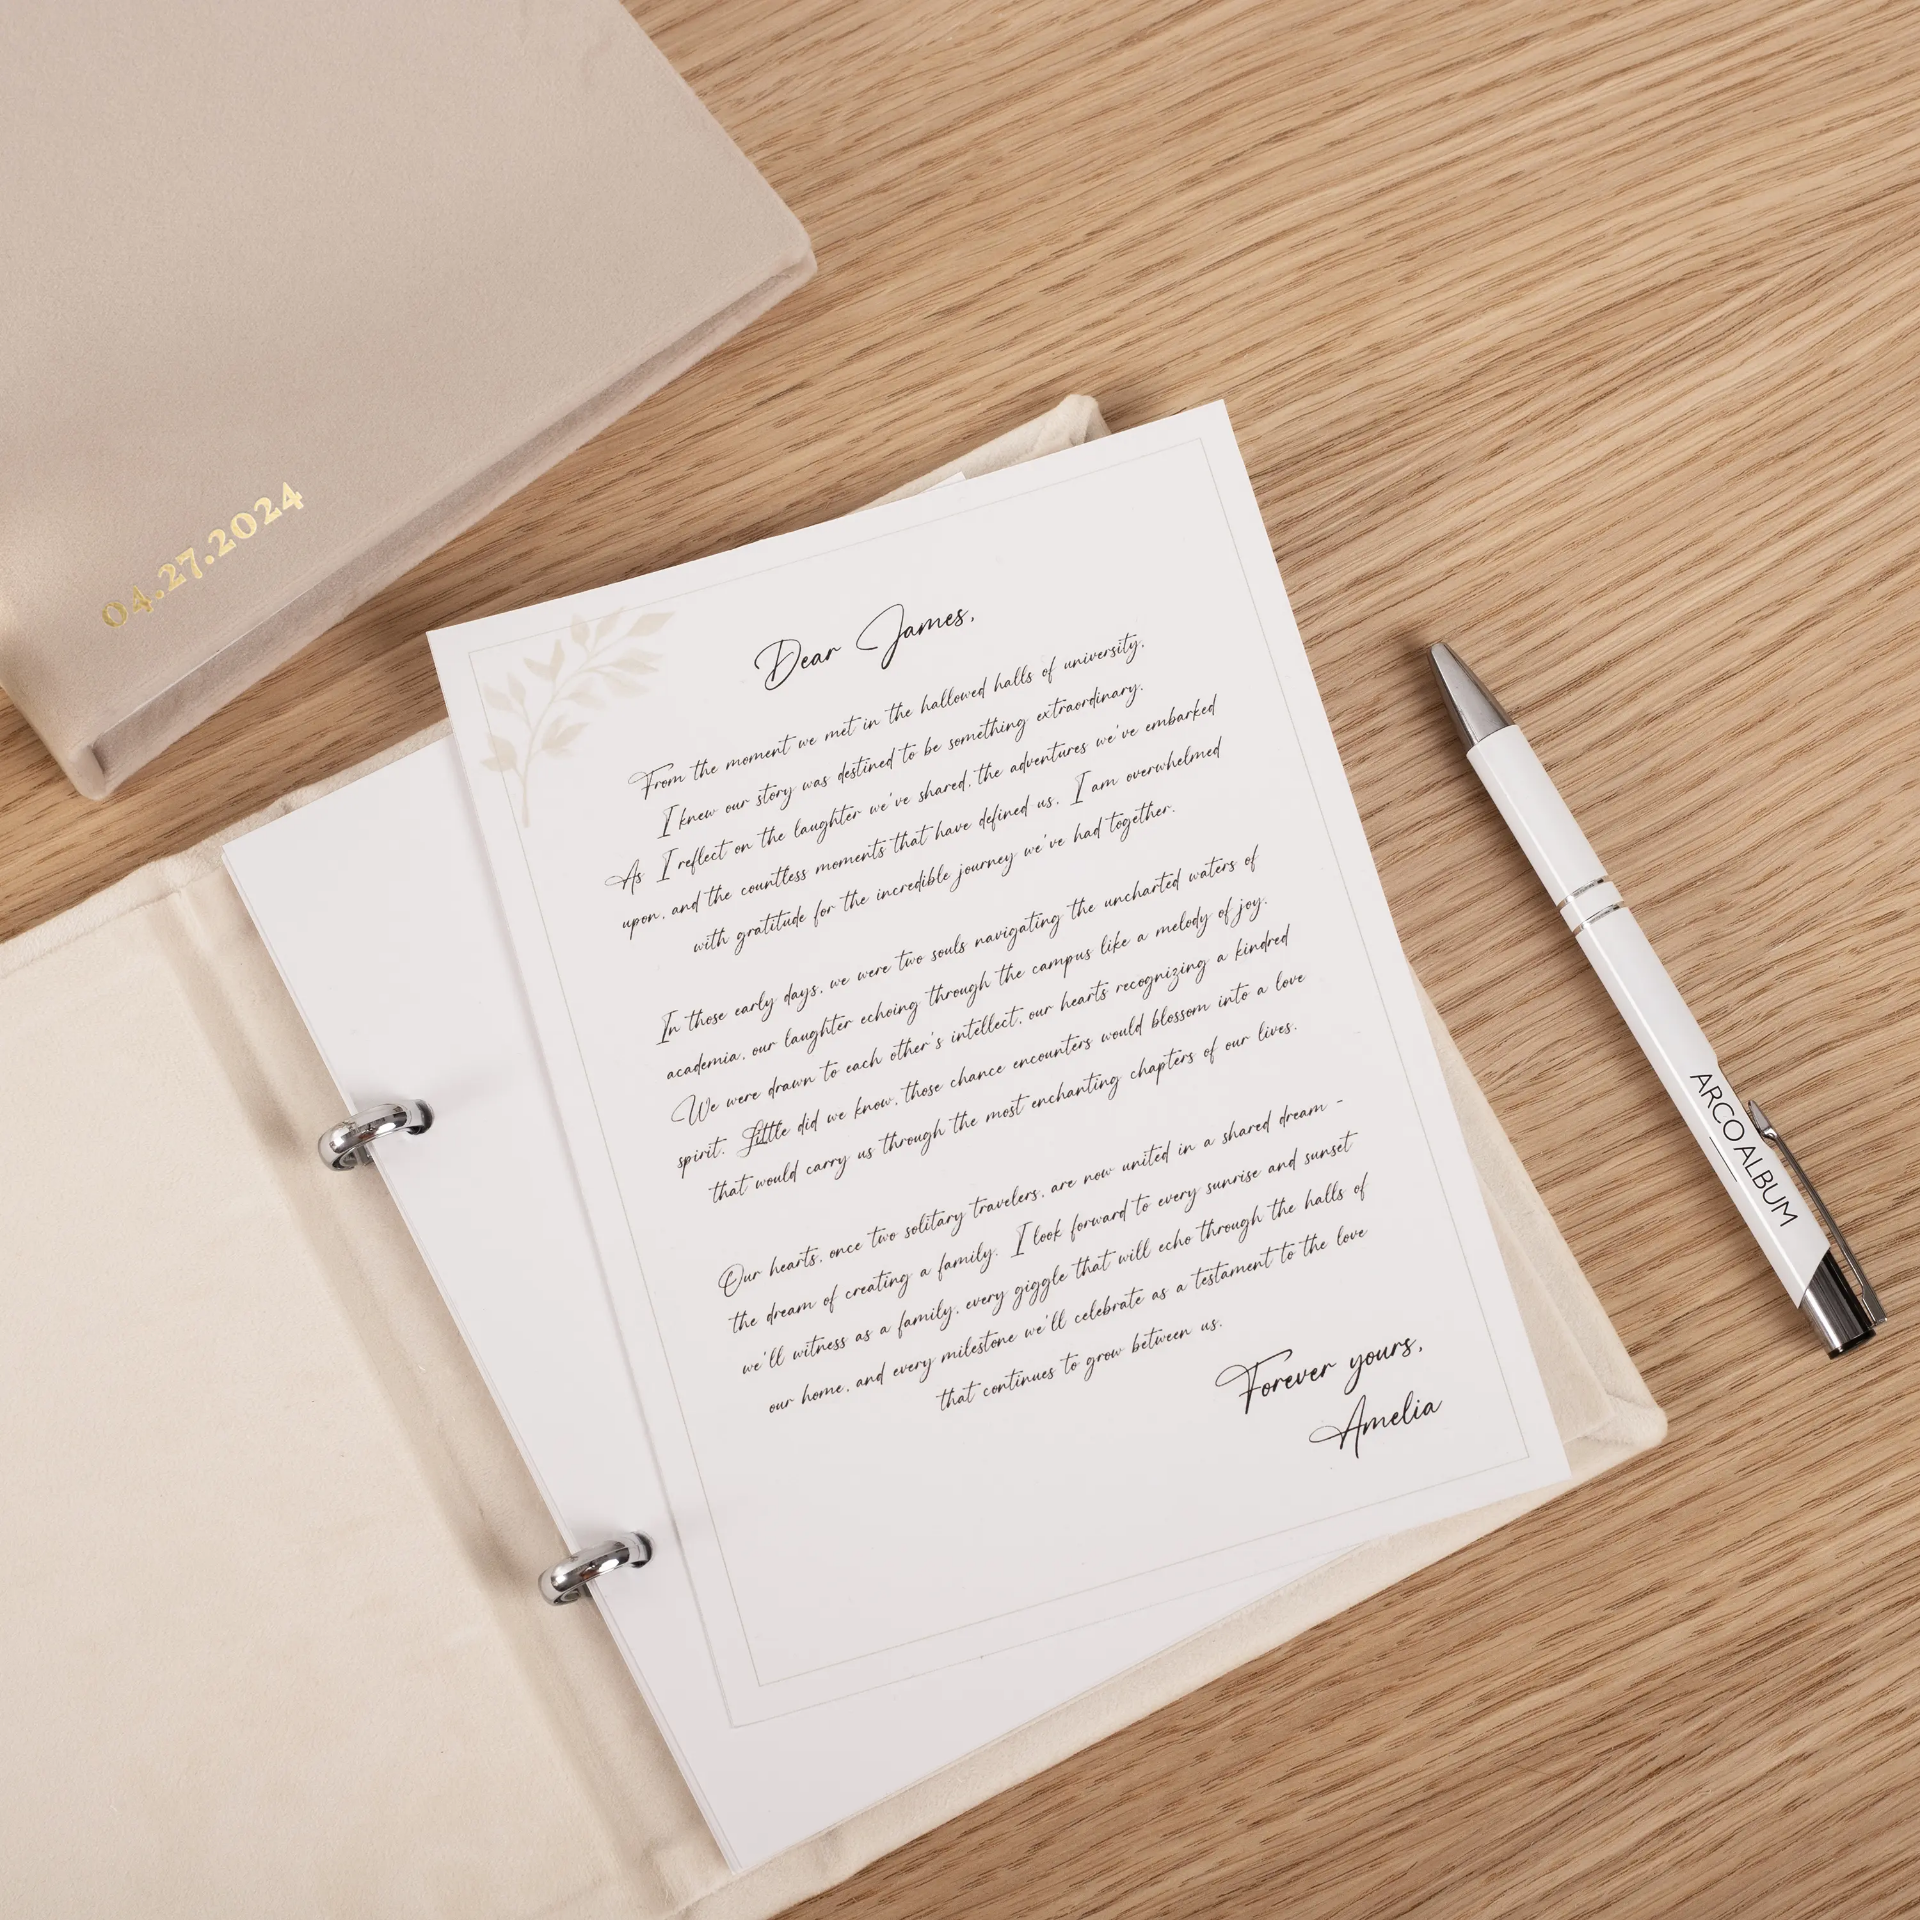 04.27.2024
Dear James,
From the moment we met in the hallowed halls of university,
I knew our story was destined to be something extraordinary.
As I reflect on the laughter we've shared, the adventures we've embarked
upon, and the countless moments that have defined us, I am overwhelmed
with gratitude for the incredible journey we've had together.
In those early days, we were two souls navigating the uncharted waters of
academia, our laughter echoing through the campus like a melody of joy.
We were drawn to each other's intellect, our hearts recognizing a kindred
spirit. Little did we know, those chance encounters would blossom into a love
that would carry us through the most enchanting chapters of our lives.
Our hearts, once two solitary travelers, are now united in a shared dream -
the dream of creating a family. I look forward to every sunrise and sunset
we'll witness as a family, every giggle that will echo through the halls of
our home, and every milestone we'll celebrate as a testament to the love
that continues to grow between us.
Forever yours,
Amelia
ARCOALBUM